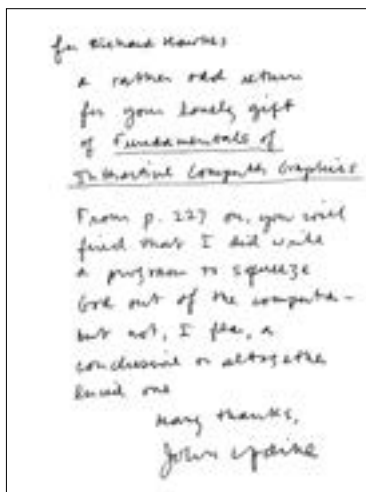 for Richard Hawkes
a rather odd return
for your lovely gift
of Fundamentals of
Interactive Computer Graphics
From p. 227 on, you will
find that I did write
a program to squeeze
God out of the computer -
but not, I fear, a
conclusive or altogether
lucid one
Many thanks,
John Updike